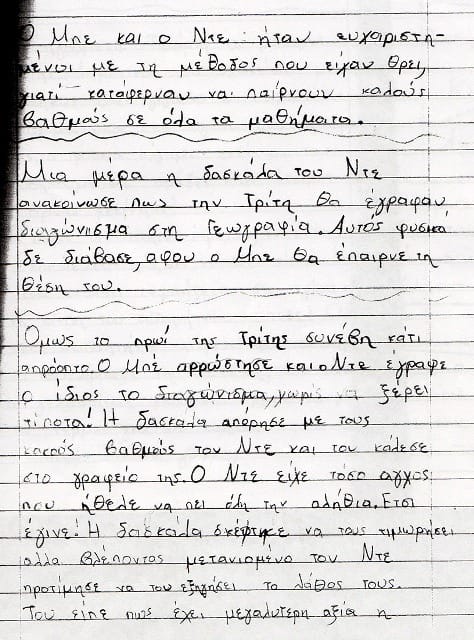 Ο Μπε και ο Ντε ήταν ευχαριστη-
μένοι με τη μέθοδος που είχαν βρει,
γιατί κατάφερναν να παίρνουν καλούς
βαθμούς σε όλα τα μαθήματα.
Μια μέρα η δασκάλα του Ντε
ανακοίνωσε πως την Τρίτη θα έγραφαν
διαγώνισμα στη Γεωγραφία. Αυτος φυσικά
δε διάβασε, αφου ο Μπε θα έπαιρνε τη
θέση του.
Ομως το πρωί της Τρίτης συνέβη κάτι
απρόοπτο. Ο Μπέ αρρώστησε και ο Ντε έγραφε
ο ίδιος το διαγώνισμα, χωρίς να ξέρει
τίποτα! Η δασκάλα απόρησε με τους
κακούς βαθμούς του Ντε και τον κάλεσε
στο γραφείο της. Ο Ντε είχε τόσο αγχος
που ήθελε να πει όλη την αλήθια. Ετσι
έγινε! Η δασκάλα σκέφτηκε να τους τιμωρήσει
αλλα βλέποντος μετανιομένο τον Ντε
προτίμησε να του εξηγήσει το λάθος τους.
Του είπε πως έχει μεγαλύτερη αξία η